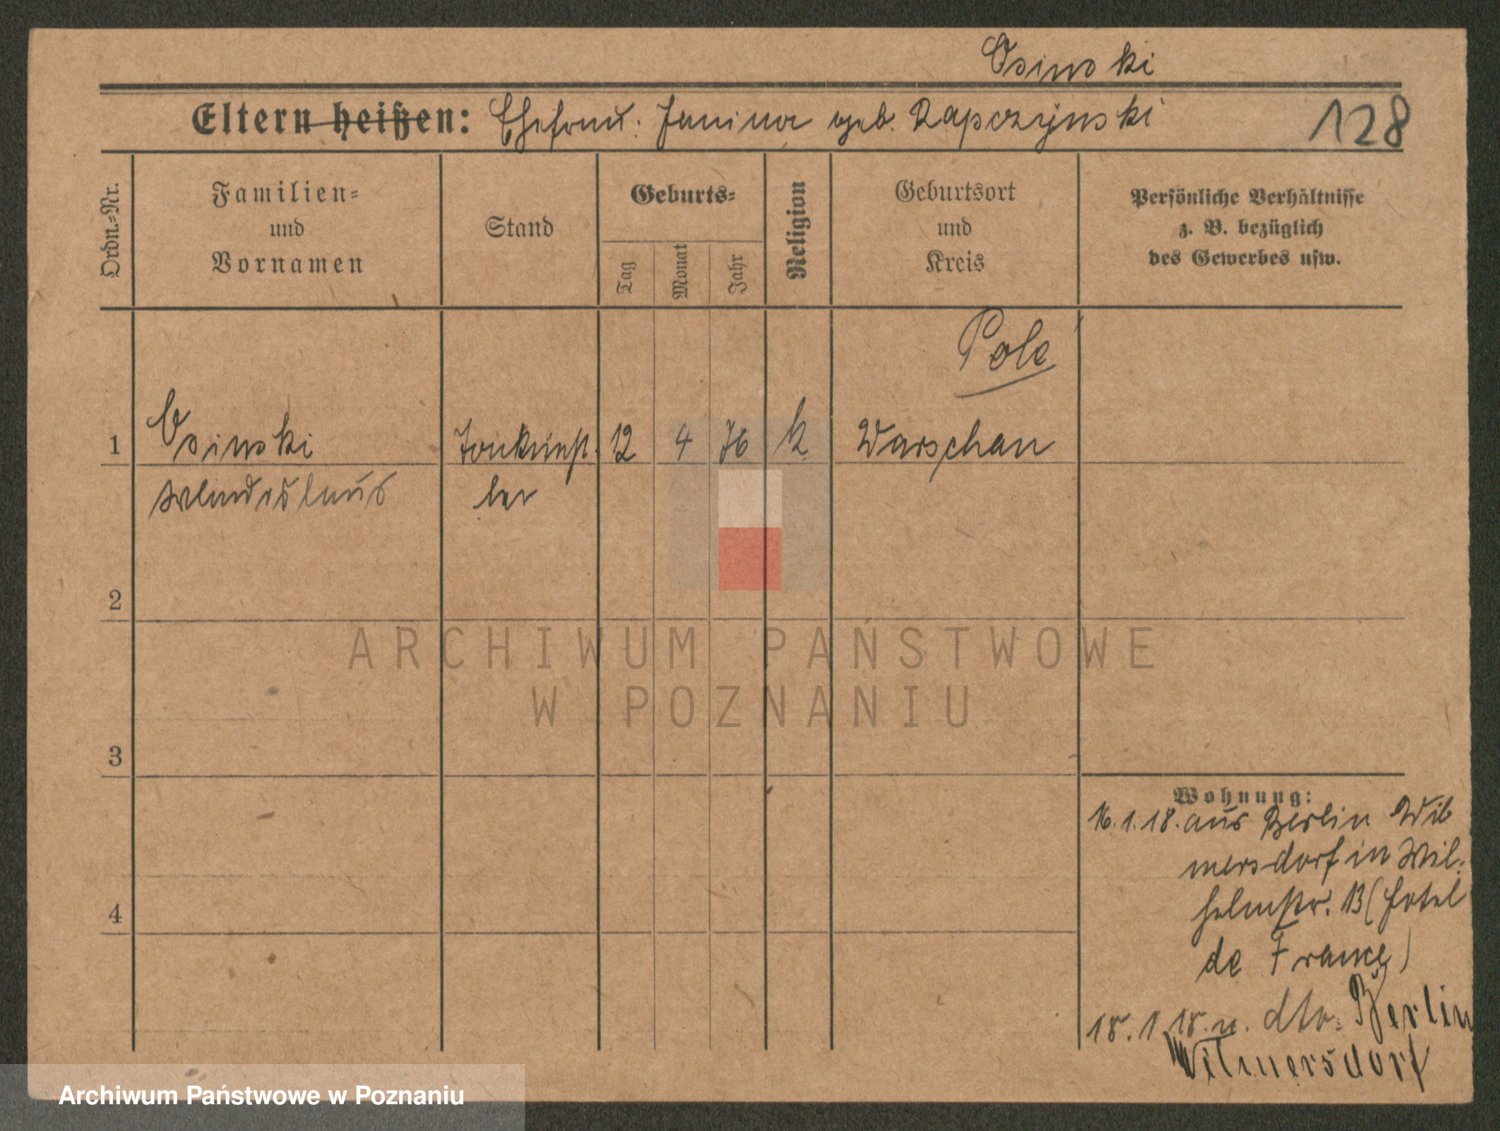 Osinski
Eltern heißen: Ehefrau: Janina geb. Rapczynski 128
Ordn.-Nr.
Familien-
und
Vornamen
Stand
Geburts-
Tag
Monat
Jahr
Religion
Geburtsort
und
Kreis
Persönliche Verhältnisse
z. B. bezüglich
des Gewerbes usw.
Pole
1 Osinski Tonkünst 12 4 76 k Warschau
Wladislaus ler
2
3
4
Wohnung:
16.1.18. aus Berlin Wil
mersdorf in Wil-
helmstr. 13 (Hotel
de France)
18.1.18. n. dto. Berlin
Wilmersdorf
ARCHIWUM PAŃSTWOWE
W POZNANIU
Archiwum Państwowe w Poznaniu